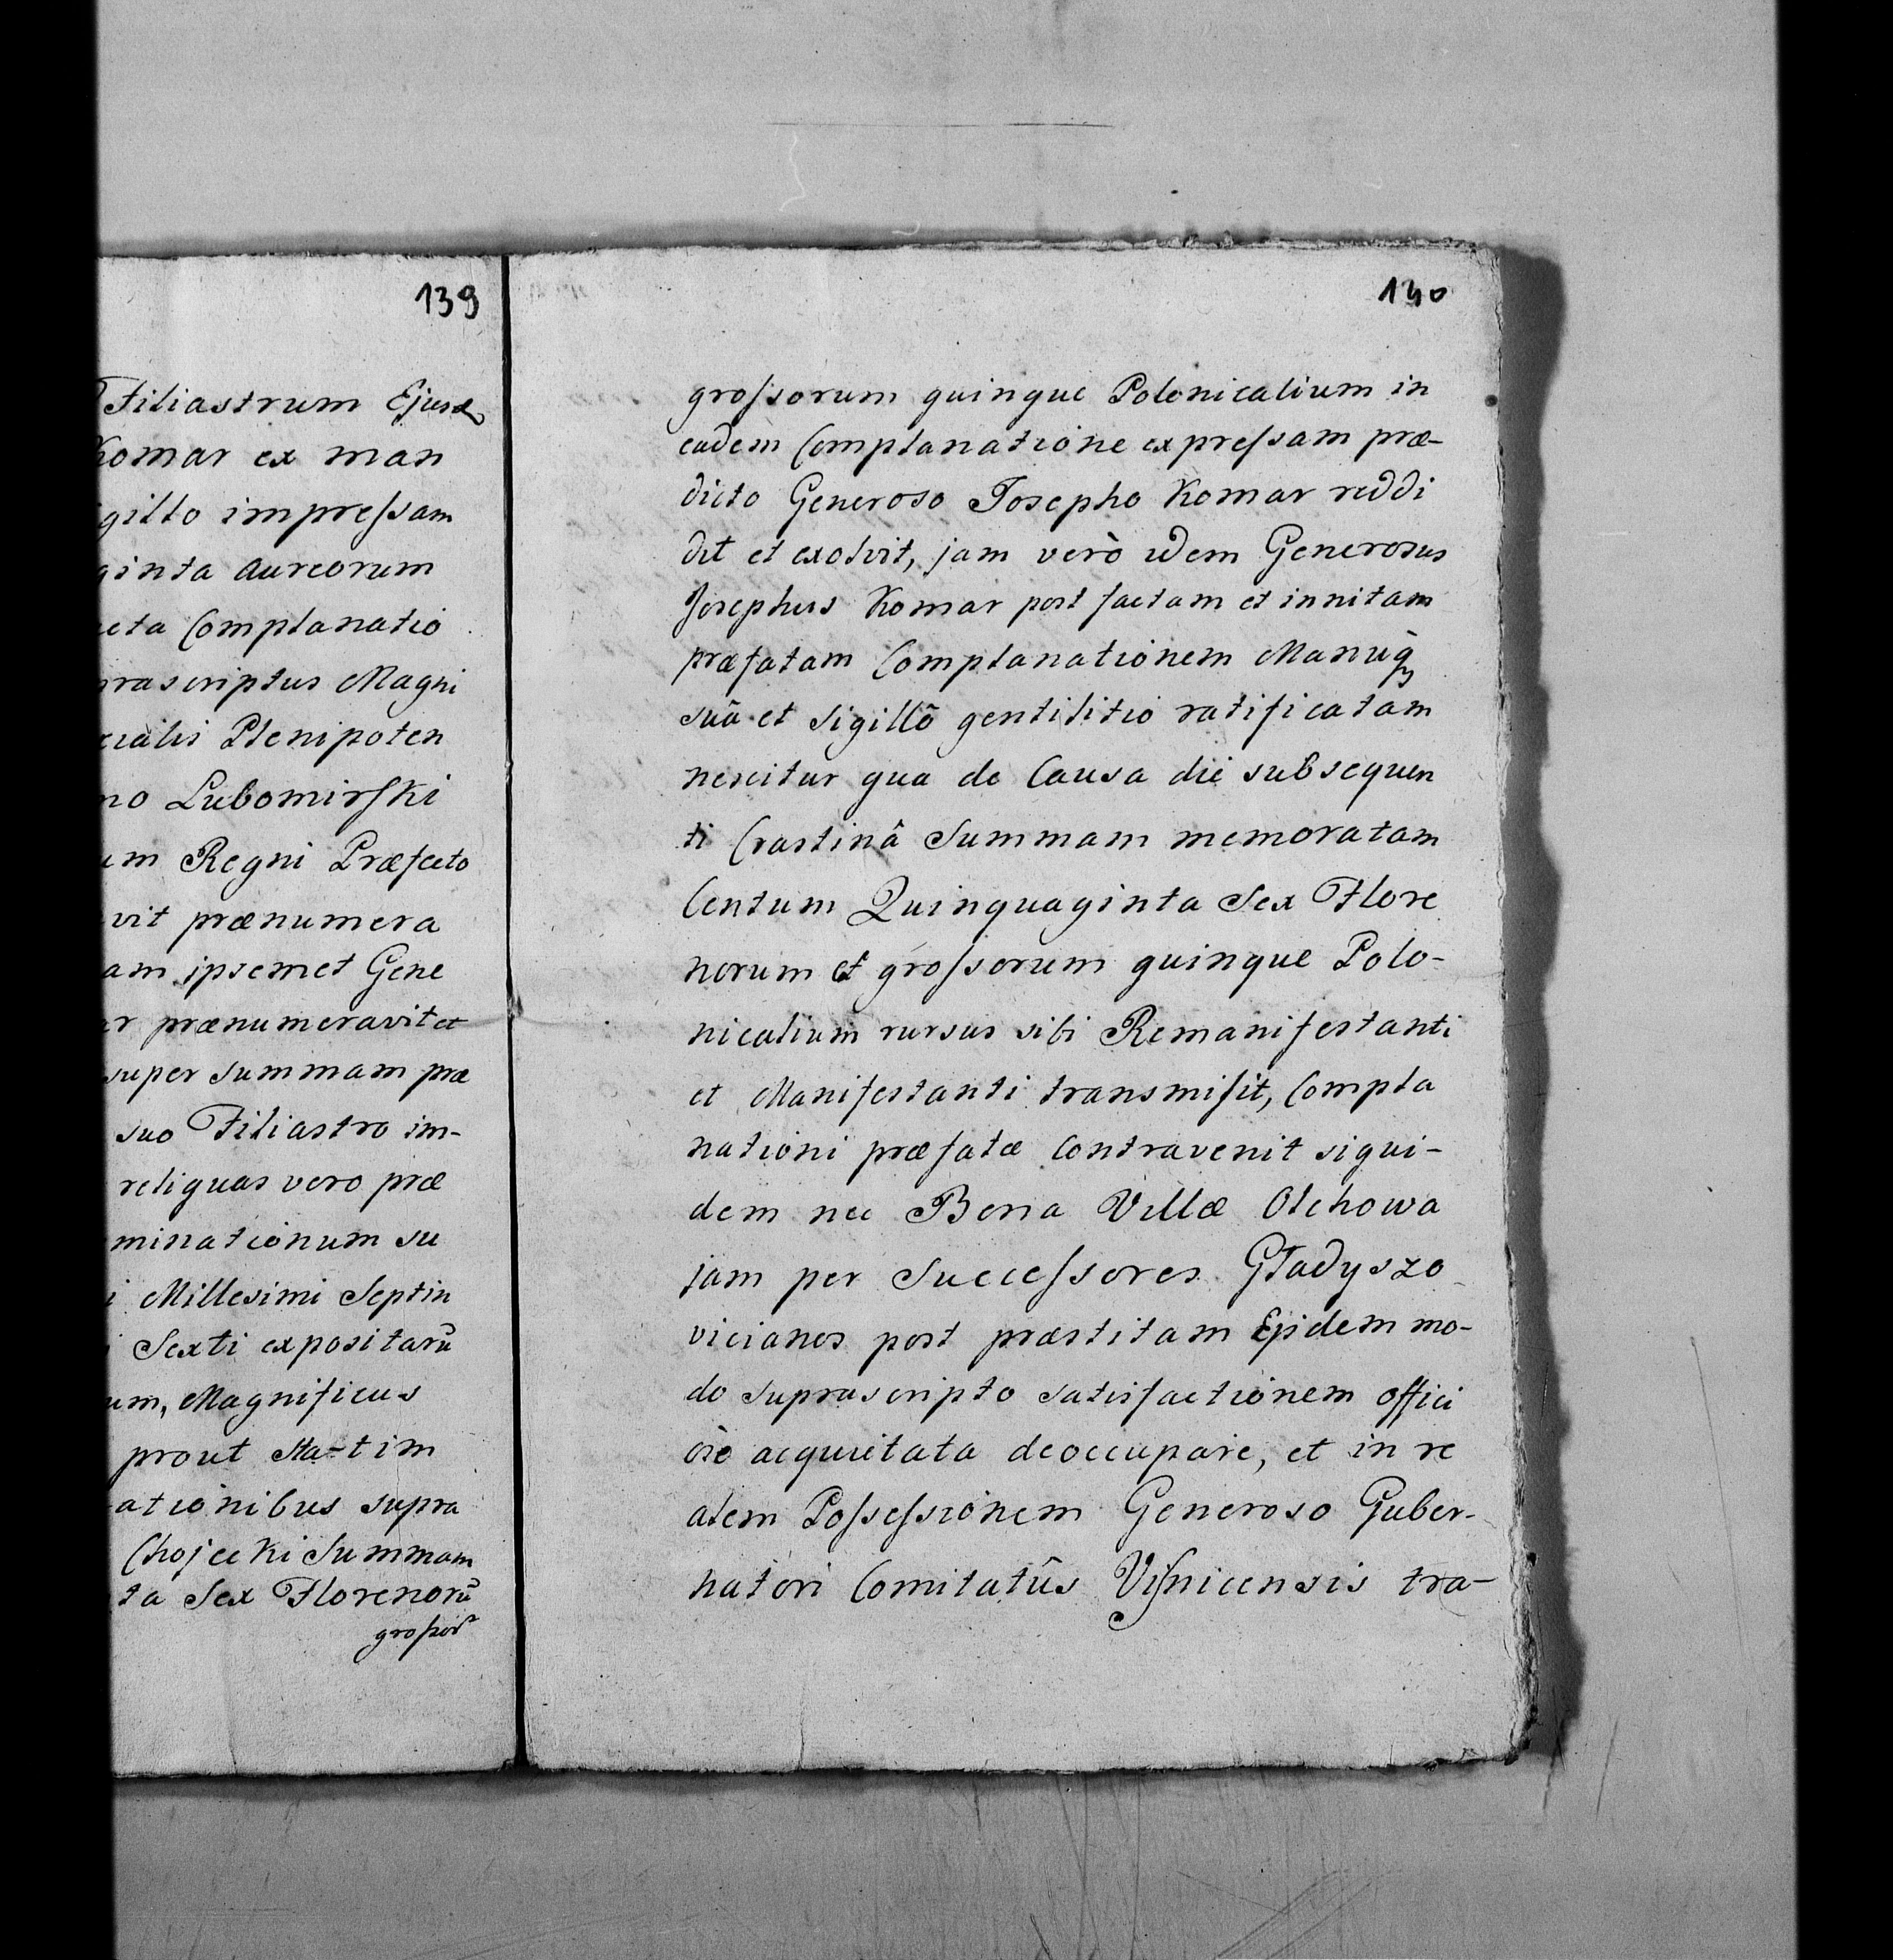 139
Filiastrum Ejusd
Komar ex man
gillo impreſsam
ginta aureorum
cta Complanatio
prascriptus Magni
cialis Plenipoten
mo Lubomirſki
um Regni Præfecto
vit prænumera
am ipsemet Gene
ar prænumeravit et
super Summam præ
suo Filiastro im-
reliquas vero præ
minationum su
i Millesimi Septin
i Sexti expositarū
um, Magnificus
prout Sta-tim
ationibus supra
Chojecki Summam
ta Sex Florenorū
groſsor
140
groſsorum quinque Polonicalium in
eadem Complanatione expreſsam præ-
dicto Generoso Josepho Komar reddi
dit et exolvit, jam verò idem Generosus
Josephus Komar post factam et innitam
præfatam Complanationem Manuq̀
suâ et Sigillô gentilitio ratificatam
nescitur qua de Causa die subsequen
ti Crastinâ Summam memoratam
Centum Quinquaginta Sex Flore
norum et groſsorum quinque Polo-
nicalium rursus sibi Remanifestanti
et Manifestanti transmiſit, Compla
nationi præfatæ Contravenit siqui-
dem nec Bona Villæ Olchowa
jam per Succeſsores Gładyszo
vicianos post præstitam Ejidem mo-
do suprascripto satisfactionem offici
ose acquietata deoccupare, et in re
alem Poſseſsionem Generoso Guber-
natori Comitatûs Viſnicensis tra-